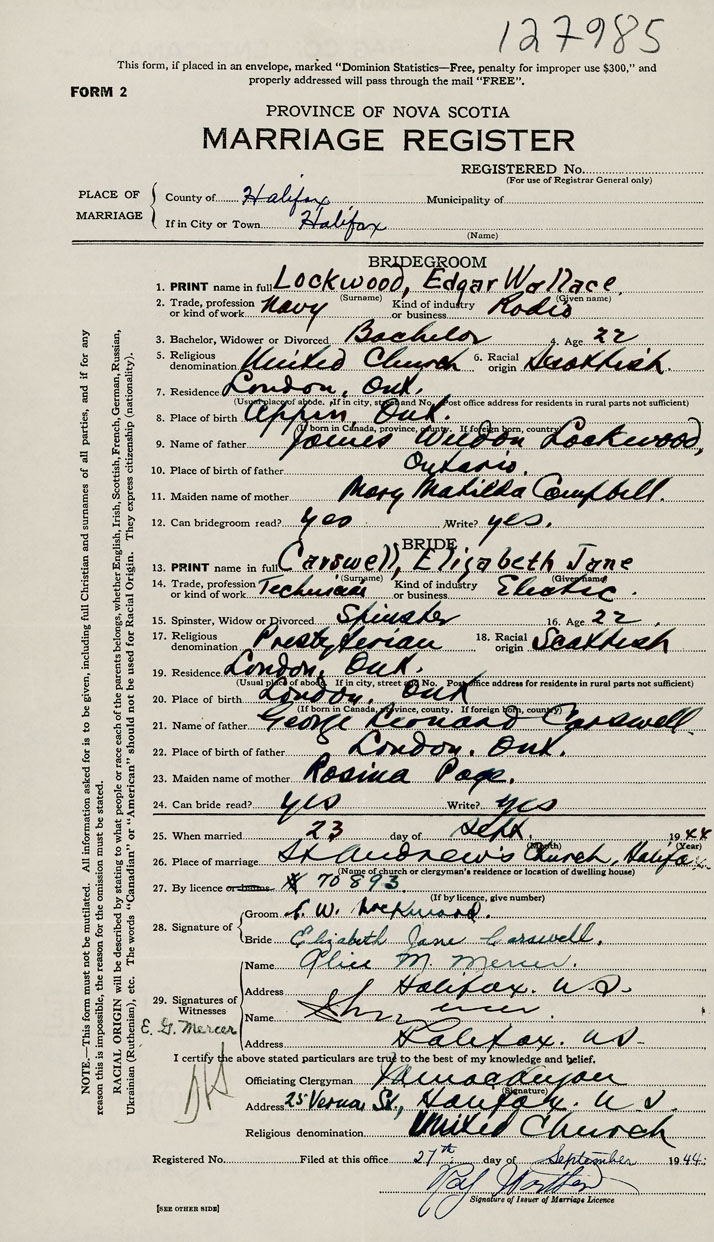 127985
This form, if placed in an envelope, marked "Dominion Statistics—Free, penalty for improper use $300," and
properly addressed will pass through the mail "FREE".
FORM 2
PROVINCE OF NOVA SCOTIA
MARRIAGE REGISTER
REGISTERED No.
(For use of Registrar General only)
PLACE OF MARRIAGE
County of Halifax Municipality of
If in City or Town Halifax
(Name)
BRIDEGROOM
1. PRINT name in full Lockwood, Edgar Wallace
(Surname) (Given name)
2. Trade, profession or kind of work Navy Kind of industry or business Radio
3. Bachelor, Widower or Divorced Bachelor 4. Age 22
5. Religious denomination United Church 6. Racial origin Scottish.
7. Residence London, Ont.
(Usual place of abode. If in city, street and No. Post office address for residents in rural parts not sufficient)
8. Place of birth Appin, Ont.
(If born in Canada, province, county. If foreign born, country)
9. Name of father James Lockwood,
10. Place of birth of father Ontario.
11. Maiden name of mother Mary Matilda Campbell.
12. Can bridegroom read? yes Write? yes.
BRIDE
13. PRINT name in full Carswell, Elizabeth Jane
(Surname) (Given name)
14. Trade, profession or kind of work Technician Kind of industry or business Electric.
15. Spinster, Widow or Divorced Spinster 16. Age 22.
17. Religious denomination Presbyterian 18. Racial origin Scottish
19. Residence London, Ont.
(Usual place of abode. If in city, street and No. Post office address for residents in rural parts not sufficient)
20. Place of birth London, Ont
(If born in Canada, province, county. If foreign born, country)
21. Name of father George Leonard Carswell
22. Place of birth of father London, Ont.
23. Maiden name of mother Rosina Page.
24. Can bride read? yes Write? yes
25. When married 23 day of Sept. 1944
(Month) (Year)
26. Place of marriage St Andrew's Church, Halifax
(Name of church or clergyman's residence or location of dwelling house)
27. By licence or banns # 70893
(If by licence, give number)
28. Signature of
Groom E. W. Lockwood.
Bride Elizabeth Jane Carswell.
29. Signatures of Witnesses
Name Alice M. Mercer.
Address Halifax. N.S.
Name
E. G. Mercer
Address Halifax. NS
I certify the above stated particulars are true to the best of my knowledge and belief.
Officiating Clergyman
(Signature)
Address 25 Vernon St., Halifax. N.S.
Religious denomination United Church
Registered No. Filed at this office 27th day of September 1944.
Signature of Issuer of Marriage Licence
[SEE OTHER SIDE]
NOTE.—This form must not be mutilated. All information asked for is to be given, including full Christian and surnames of all parties, and if for any
reason this is impossible, the reason for the omission must be stated.
RACIAL ORIGIN will be described by stating to what people or race each of the parents belongs, whether English, Irish, Scottish, French, German, Russian,
Ukrainian (Ruthenian), etc. The words "Canadian" or "American" should not be used for Racial Origin. They express citizenship (nationality).